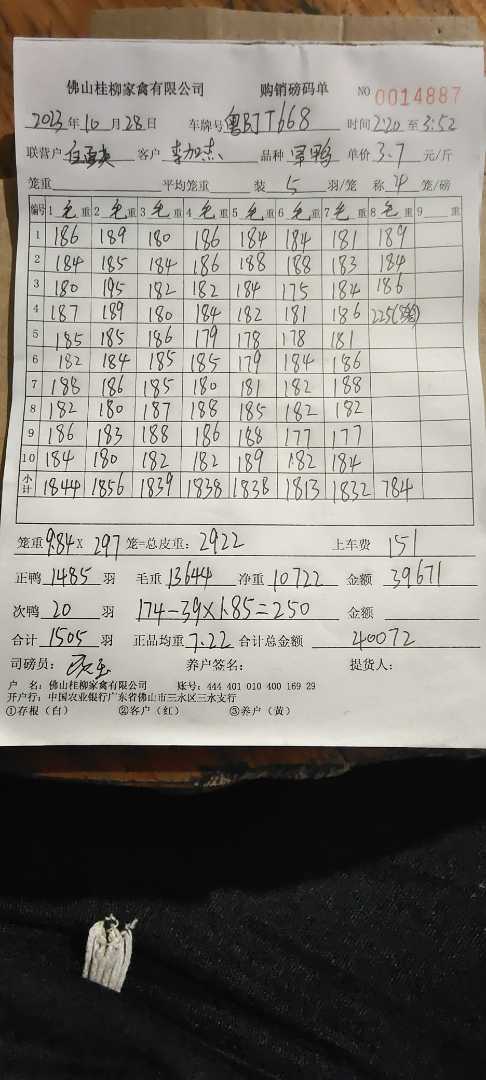 佛山桂柳家禽有限公司 购销磅码单 NO 0014887
2023年10月28日 车牌号 粤BJT668 时间 2:20 至 3:52
联营户 客户 李加杰 品种 单价 3.7 元/斤
笼重 平均笼重 装 5 羽/笼 称 4 笼/磅
编号 1 毛 重 2 毛 重 3 毛 重 4 毛 重 5 毛 重 6 毛 重 7 毛 重 8 毛 重 9 重
1 186 189 180 186 184 184 181 189
2 184 185 184 186 188 188 183 184
3 180 195 182 182 184 175 184 186
4 187 189 180 184 182 181 186 225
5 185 185 186 179 178 178 181
6 182 184 185 185 179 184 186
7 188 186 185 180 181 182 188
8 182 180 187 188 185 182 182
9 186 183 188 186 188 177 177
10 184 180 182 182 189 182 184
小计 1844 1856 1839 1838 1838 1813 1832 784
笼重 9.84 X 297 笼=总皮重: 2922 上车费 151
正鸭 1485 羽 毛重 13644 净重 10722 金额 39671
次鸭 20 羽 174-39×1.85=250 金额
合计 1505 羽 正品均重 7.22 合计总金额 40072
司磅员: 养户签名: 提货人:
户 名: 佛山桂柳家禽有限公司 账号: 444 401 010 400 169 29
开户行: 中国农业银行广东省佛山市三水区三水支行
①存根（白） ②客户（红） ③养户（黄）